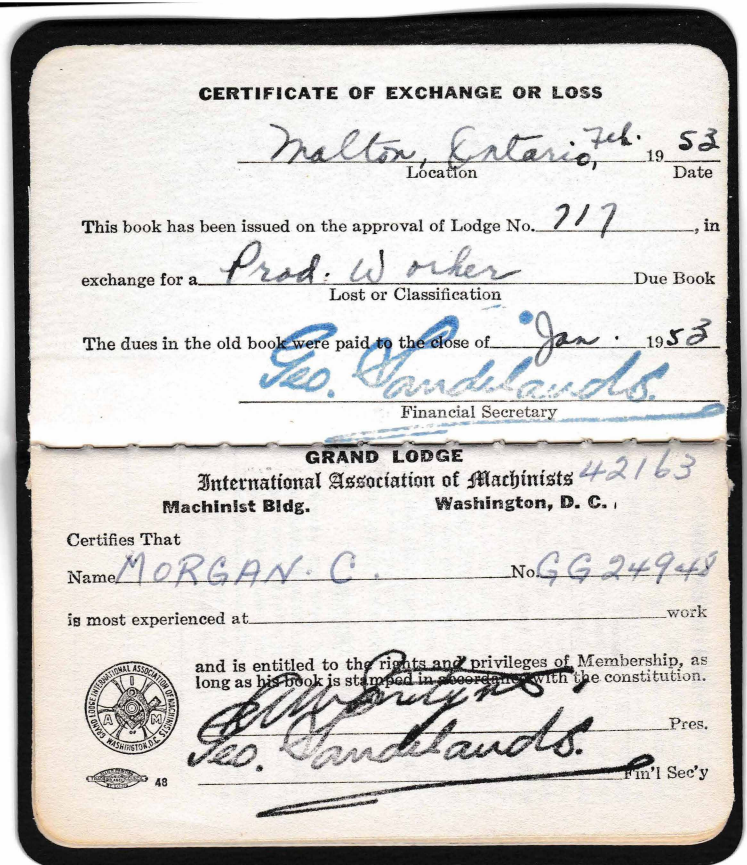 CERTIFICATE OF EXCHANGE OR LOSS
Malton, Ontario, Feb. 1953
Location Date
This book has been issued on the approval of Lodge No. 717, in
exchange for a Prod. Worker Due Book
Lost or Classification
The dues in the old book were paid to the close of Jan. 1953
Geo. Sandilands.
Financial Secretary
GRAND LODGE
International Association of Machinists 42163
Machinist Bldg. Washington, D. C.
Certifies That
Name MORGAN. C. No. GG24948
is most experienced at work
and is entitled to the rights and privileges of Membership, as
long as his book is stamped in accordance with the constitution.
GRAND LODGE INTERNATIONAL ASSOCIATION OF MACHINISTS
I A M OF
WASHINGTON, D.C.
Pres.
Geo. Sandilands.
Fin'l Sec'y
48